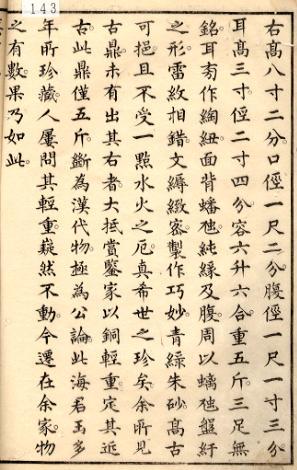 143
右高八寸二分口徑一尺二分腹徑一尺一寸三分
耳高三寸徑二寸四分容六升六合重五斤三足無
銘耳旁作綯紐面背蟠虺純緣及腹周以螭虺盤紆
之形雷紋相錯文縟緻密製作巧妙青綠朱砂高古
可挹且不受一點水火之厄真希世之珍矣余所見
古鼎未有出其右者大抵賞鑒家以銅輕重定其近
古此鼎僅五斤斷為漢代物極為公論此海君玉多
年所珍藏人屢問其輕重蘶然不動今遷在余家物
之有數果乃如此